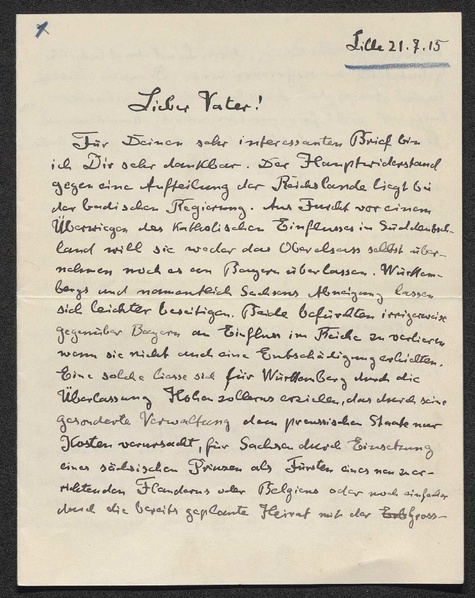 1
Lille 21.7.15
Lieber Vater!
Für Deinen sehr interessanten Brief bin
ich Dir sehr dankbar. Der Hauptwiderstand
gegen eine Aufteilung der Reichslande liegt bei
der badischen Regierung. Aus Furcht vor einem
Überwiegen des katholischen Einflusses in Süddeutsch-
land will sie weder das Oberelsass selbst über-
nehmen noch es an Bayern überlassen. Württem-
bergs und namentlich Sachsens Abneigung lassen
sich leichter beseitigen. Beide befürchten irrigerweise
gegenüber Bayern an Einfluss im Reiche zu verlieren
wenn sie nicht auch eine Entschädigung erhielten.
Eine solche liesse sich für Württemberg durch die
Überlassung Hohenzollerns erzielen, das durch seine
gesonderte Verwaltung dem preussischen Staate nur
Kosten verursacht, für Sachsen durch Einsetzung
eines sächsischen Prinzen als Fürsten eines neu zu er-
richtenden Flanderns oder Belgiens oder noch einfacher
durch die bereits geplante Heirat mit der Erbgross-